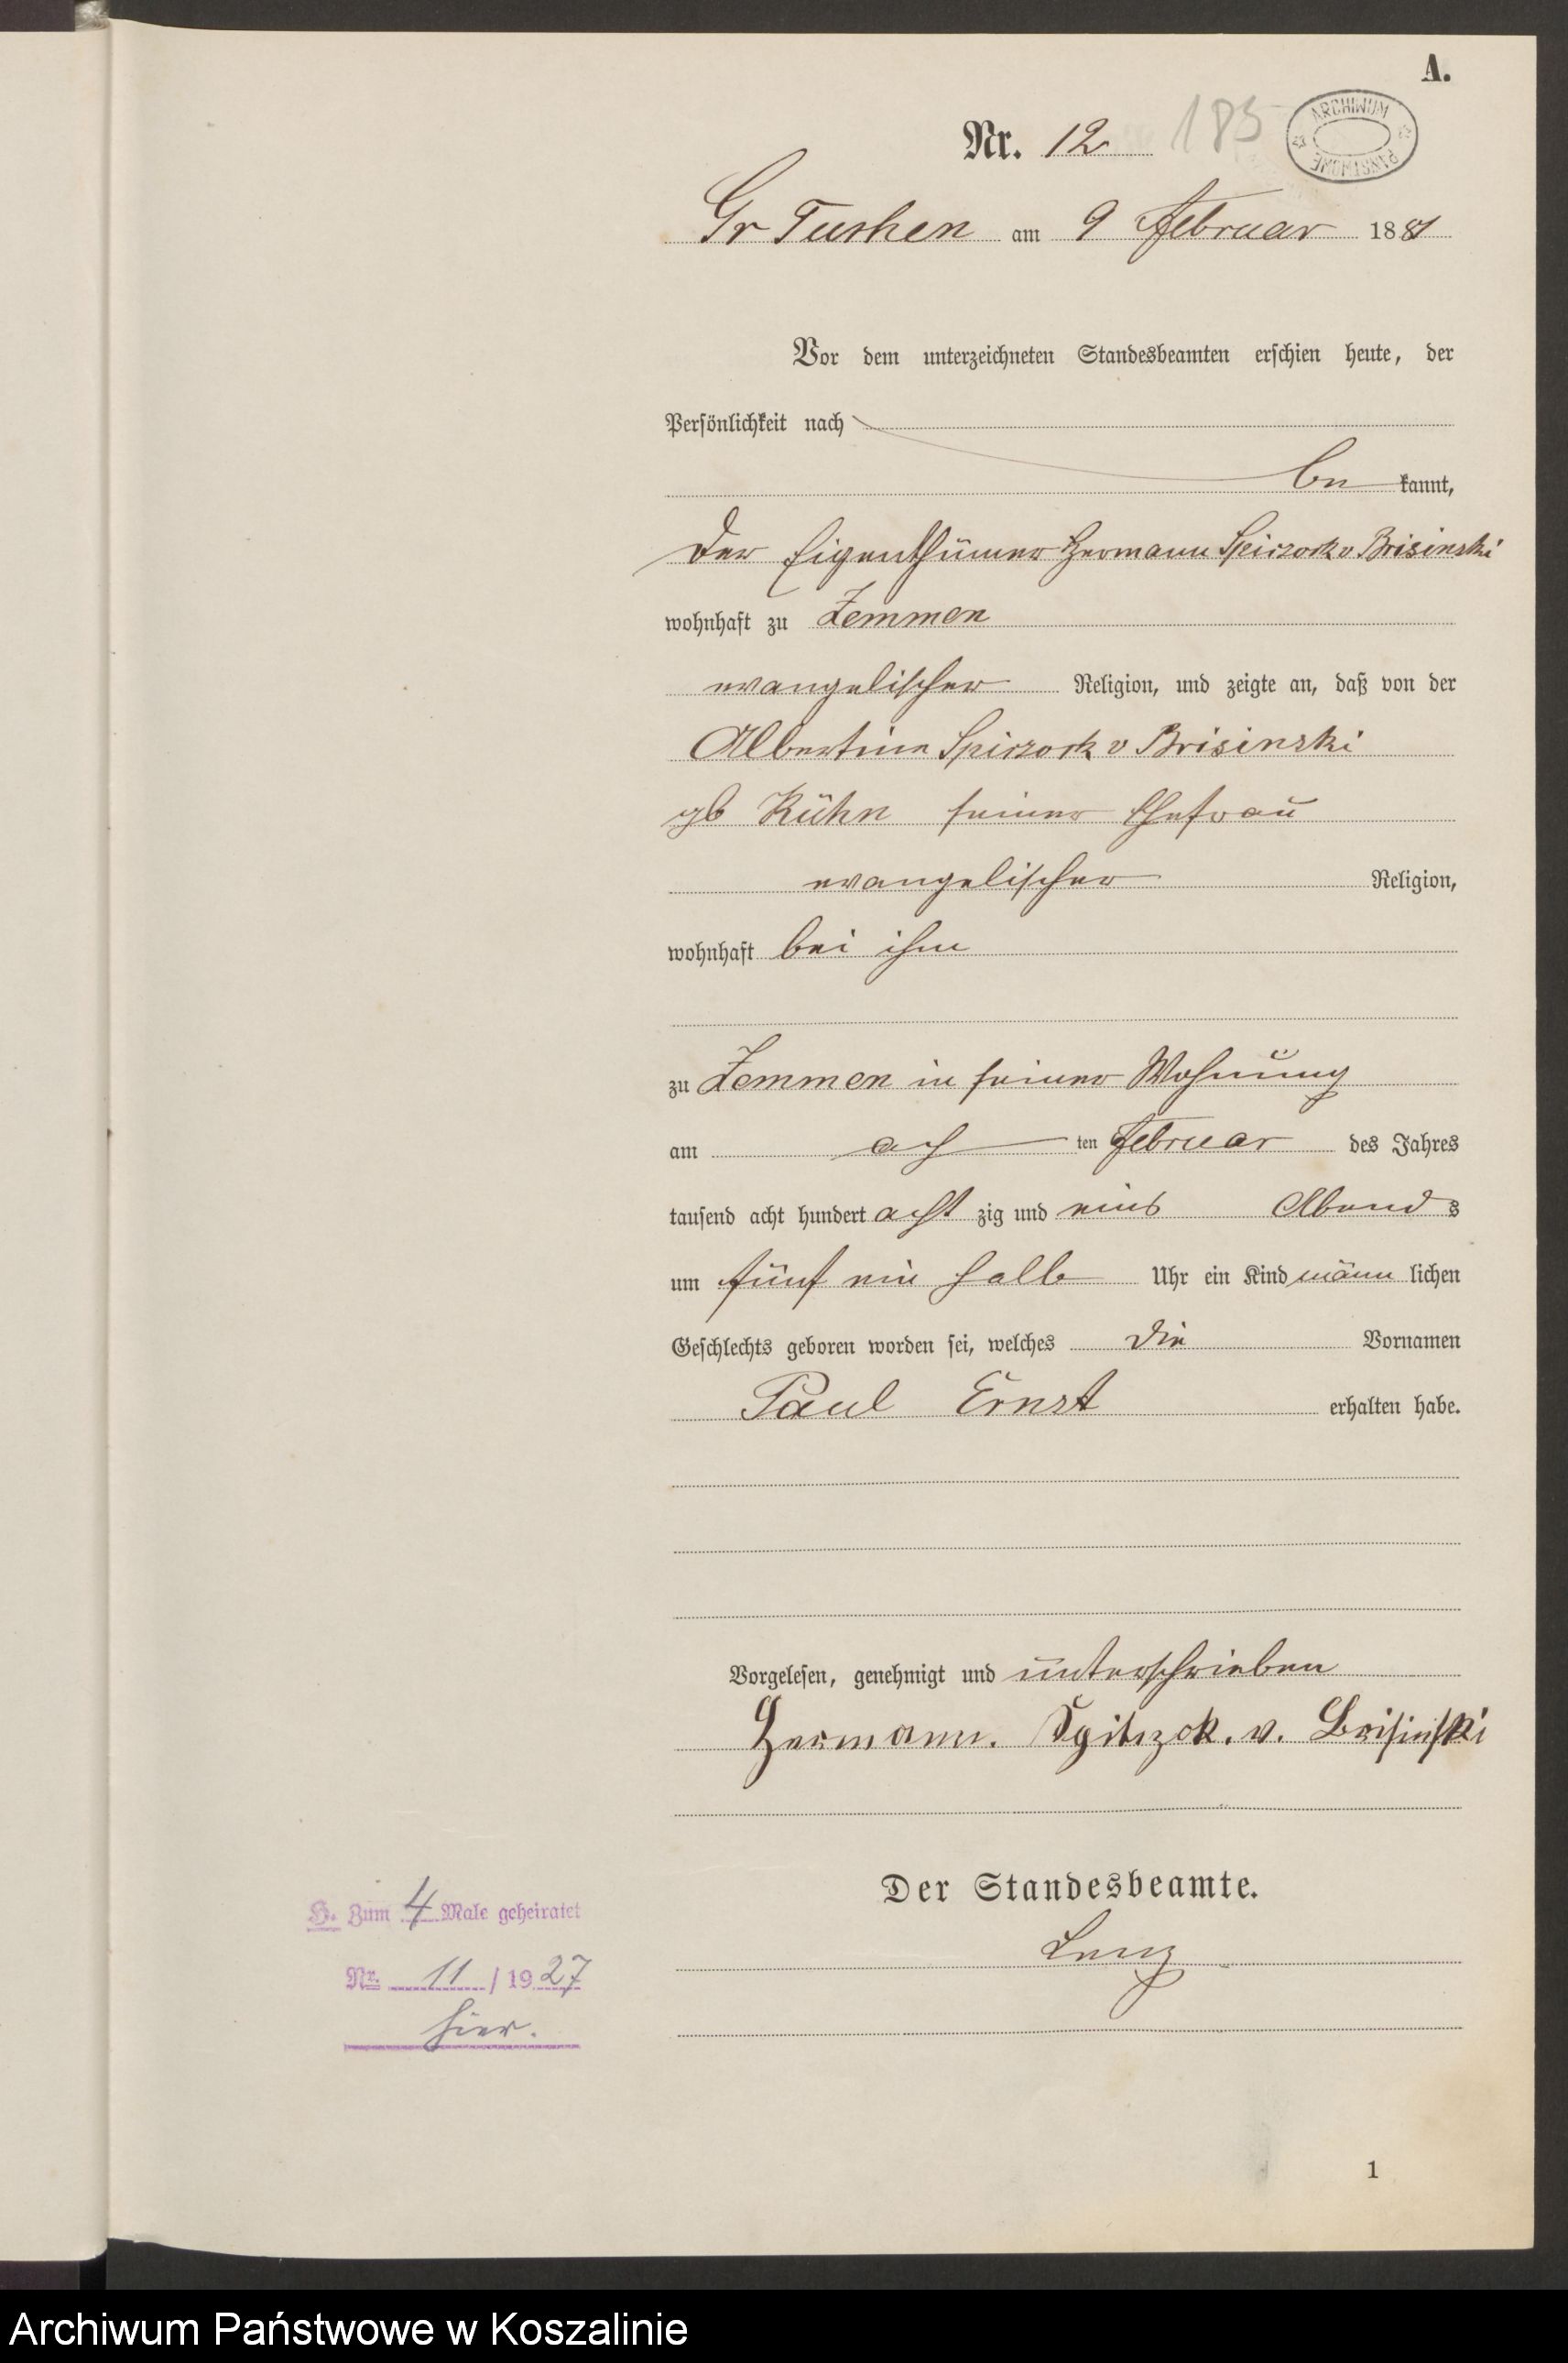 A.
Nr. 12 185
ARCHIWUM PAŃSTWOWE
Gr Tushen am 9 Februar 1881
Vor dem unterzeichneten Standesbeamten erschien heute, der
Persönlichkeit nach
be kannt,
der Eigenthümer Hermann v Brisinski
wohnhaft zu Zemmen
evangelischer Religion, und zeigte an, daß von der
Albertine v Brisinski
gb Kühn seiner Ehefrau
evangelischer Religion,
wohnhaft bei ihm
zu Zemmen in seiner Wohnung
am ach ten Februar des Jahres
tausend acht hundert acht zig und eins Abend s
um fünf ein halb Uhr ein Kind männ lichen
Geschlechts geboren worden sei, welches die Vornamen
Paul Ernst erhalten habe.
Vorgelesen, genehmigt und unterschrieben
Hermann. v. Brisinski
Der Standesbeamte.
Lenz
H. Zum 4 Male geheiratet
Nr. 11 / 1927
hier.
1
Archiwum Państwowe w Koszalinie